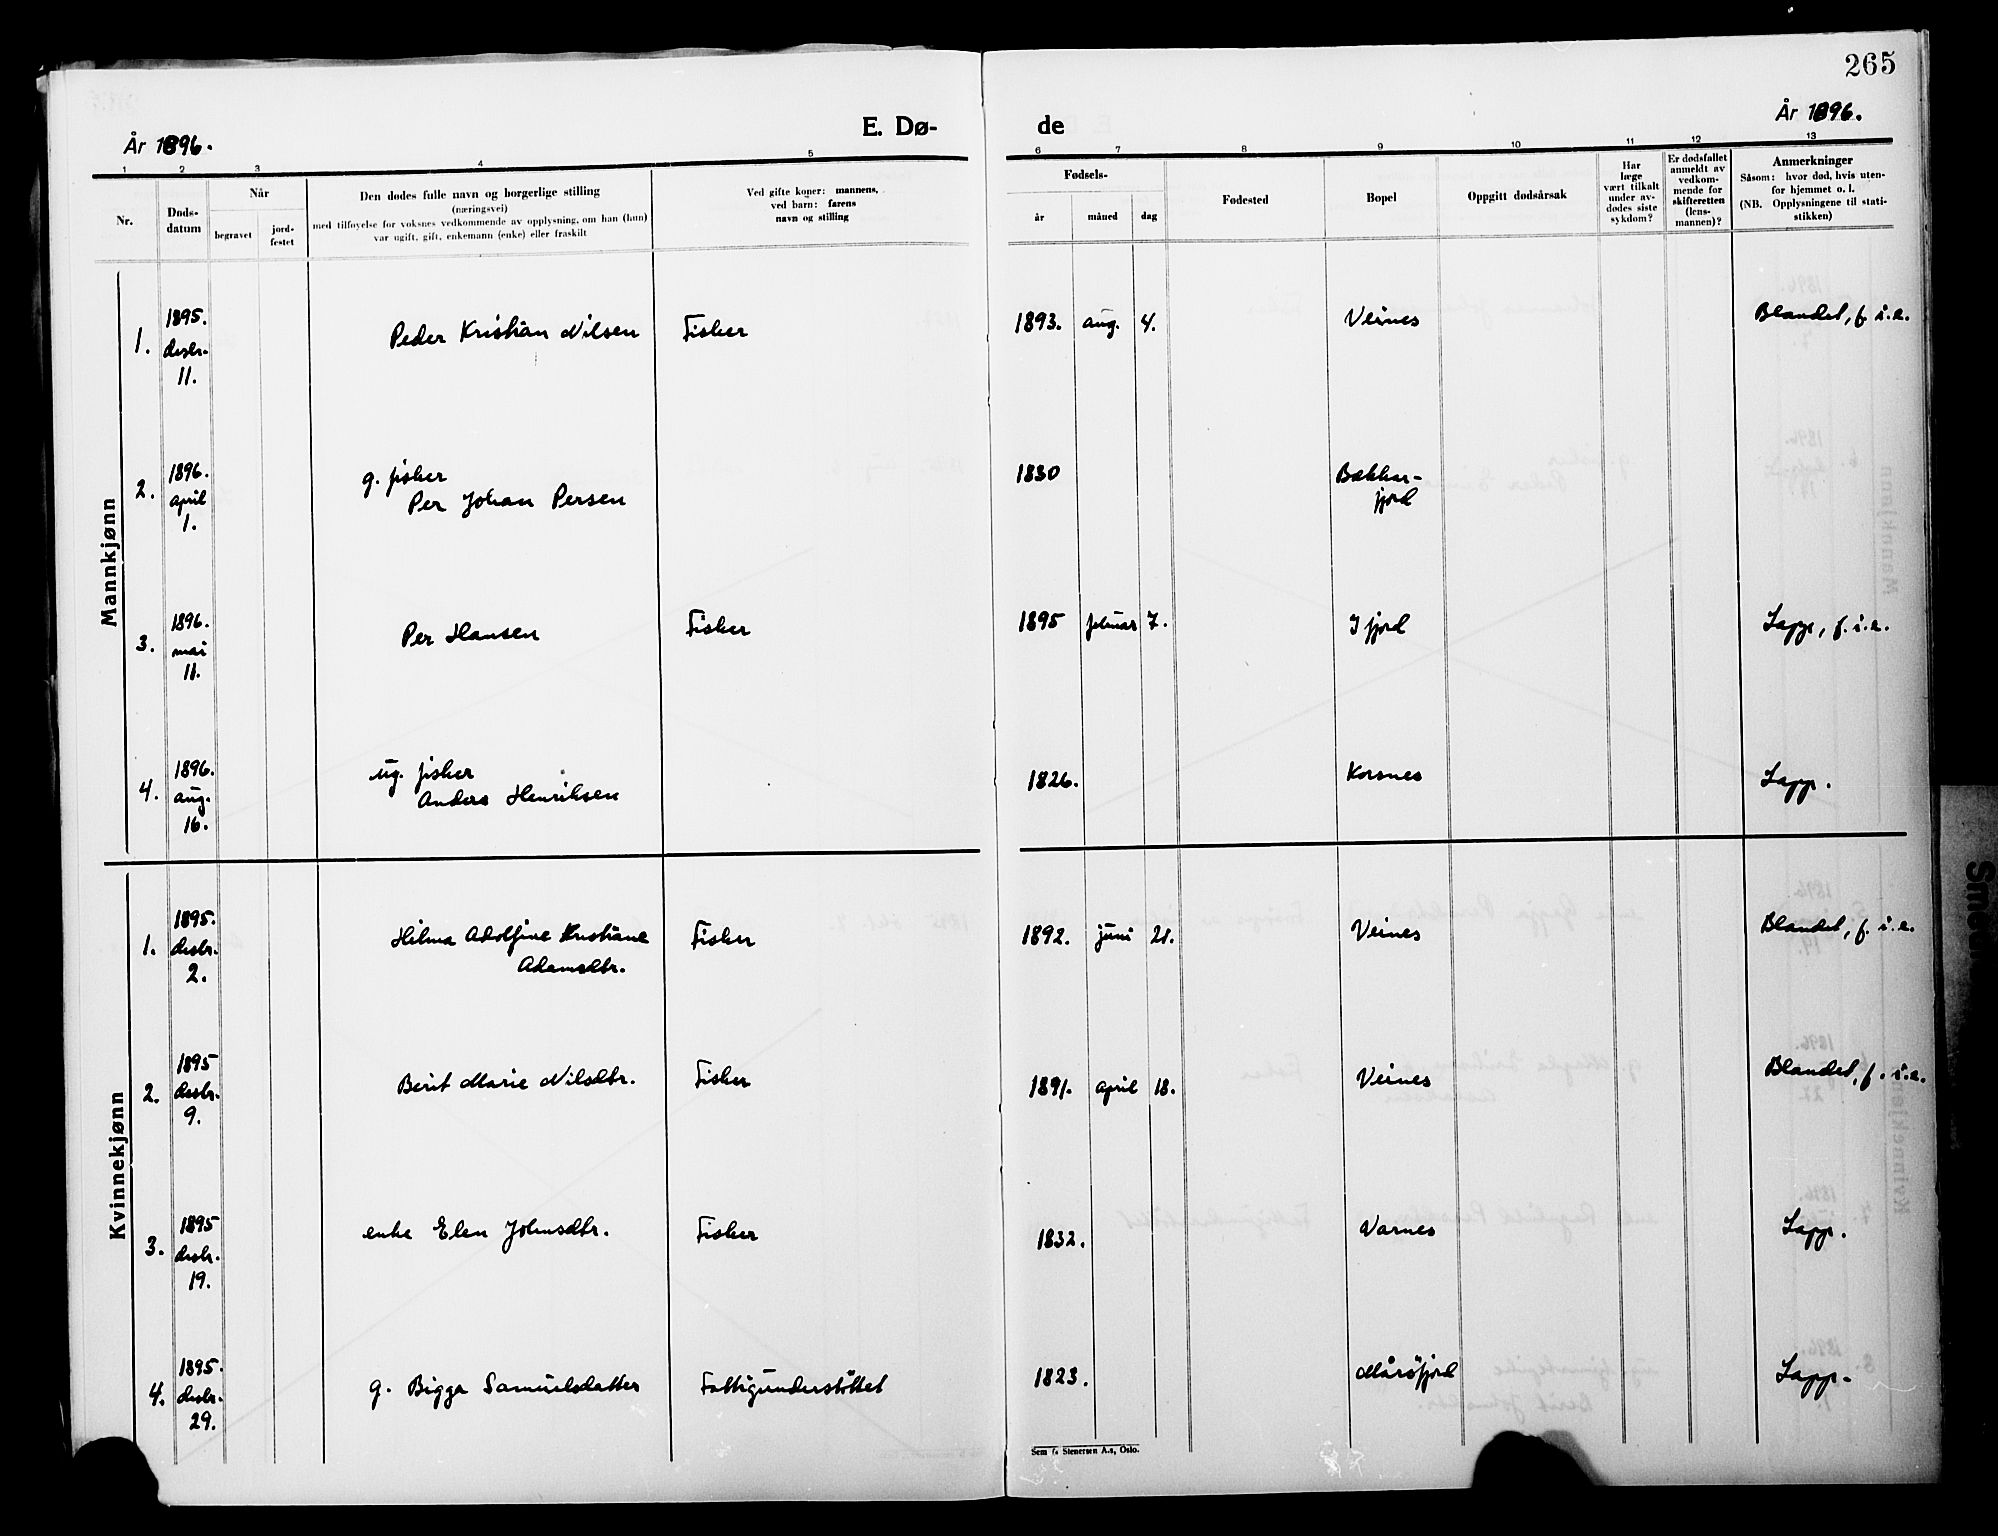 265
År 1896.
E. Dø-
de
År 1896.
1 2 3 4 5 6 7 8 9 10 11 12 13
Nr.
Døds-
datum
Når
begravet
jord-
festet
Den dødes fulle navn og borgerlige stilling
(næringsvei)
med tilføyelse for voksnes vedkommende av opplysning, om han (hun)
var ugift, gift, enkemann (enke) eller fraskilt
Ved gifte koner: mannens,
ved barn: farens
navn og stilling
Fødsels-
år
måned
dag
Fødested
Bopel
Oppgitt dødsårsak
Har
læge
vært tilkalt
under av-
dødes siste
sykdom?
Er dødsfallet
anmeldt av
vedkom-
mende for
skifteretten
(lens-
mannen)?
Anmerkninger
Såsom: hvor død, hvis uten-
for hjemmet o. l.
(NB. Opplysningene til stati-
stikken)
Mannkjønn
1. 1895. desbr. 11. Peder Kristian Nilsen Fisker 1893. aug. 4. Veines Blandet, f. i. e.
2. 1896. april 1. g. fisker
Per Johan Persen 1830 Bekkar-
fjord
3. 1896. mai 11. Per Hansen Fisker 1895 februar 7. Ifjord Lapp, f. i. e.
4. 1896. aug. 16. ug. fisker
Anders Henriksen 1826. Korsnes Lapp.
Kvinnekjønn
1. 1895. desbr. 2. Hilma Adolfine Kristiane
Adamsdtr. Fisker 1892. juni 21. Veines Blandet, f. i. e.
2. 1895 desbr. 9. Berit Marie Nilsdtr. Fisker 1891. april 18. Veines Blandet, f. i. e.
3. 1895 desbr. 19. enke Elen Johnsdtr. Fisker 1832. Varnes Lapp.
4. 1895. desbr. 29. g. Bigga Samuelsdatter Fattigunderstöttet 1823. Mårøfjord Lapp.
Sem & Stenersen A.s, Oslo.